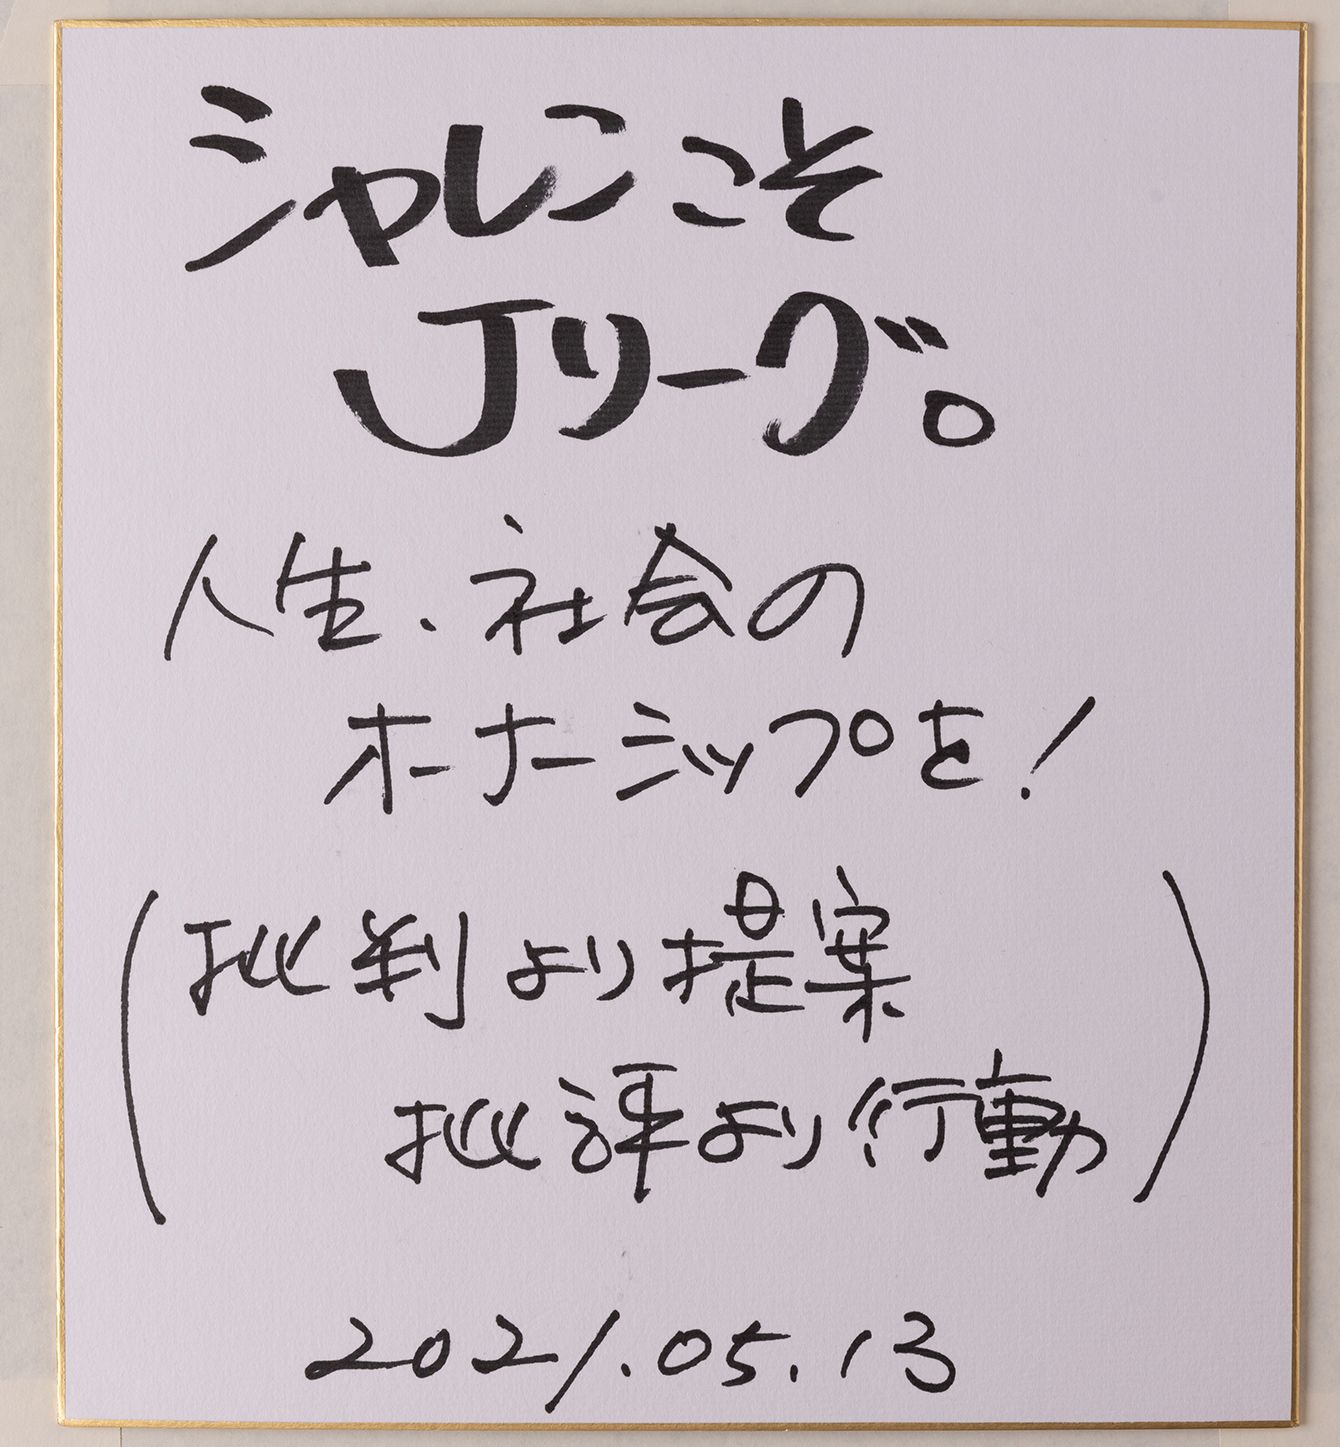 シャレンこそ
Jリーグ。
人生、社会の
オーナーシップを!
(批判より提案
批評より行動)
2021.05.13